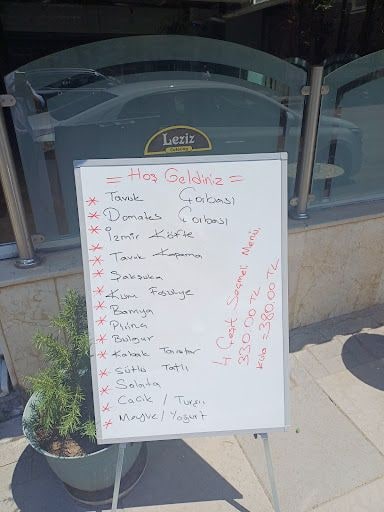 Leziz
= Hoş Geldiniz =
* Tavuk Çorbası
* Domates Çorbası
* İzmir Köfte
* Tavuk Kapama
* Şakşuka
* Kuru Fasulye
* Bamya
* Pirinç
* Bulgur
* Kabak Tarator
* Sütlü Tatlı
* Salata
* Cacık / Turşu
* Meyve / Yoğurt
4 Çeşit Seçmeli Menü
330.00 TL
=380.00 TL